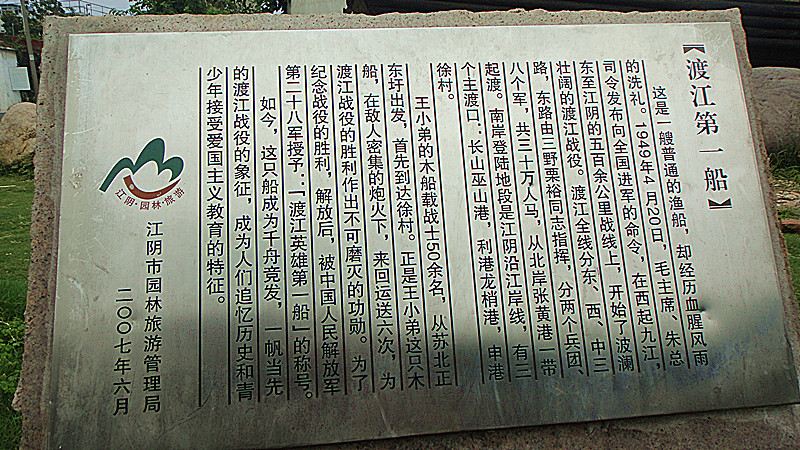 【渡江第一船】
这是一艘普通的渔船，却经历血腥风雨
的洗礼。1949年4月20日，毛主席、朱总
司令发布向全国进军的命令，在西起九江，
东至江阴的五百余公里战线上，开始了波澜
壮阔的渡江战役。渡江全线分东、西、中三
路，东路由三野粟裕同志指挥，分两个兵团、
八个军，共三十万人马，从北岸张黄港一带
起渡。南岸登陆地段是江阴沿江岸线，有二
个主渡口：长山巫山港，利港龙梢港，申港
徐村。
王小弟的木船载战士50余名，从苏北正
东圩出发，首先到达徐村。正是王小弟这只木
船，在敌人密集的炮火下，来回运送六次，为
渡江战役的胜利作出不可磨灭的功勋。为了
纪念战役的胜利，解放后，被中国人民解放军
第二十八军授予：「渡江英雄第一船」的称号。
如今，这只船成为千舟竞发，一帆当先
的渡江战役的象征，成为人们追忆历史和青
少年接受爱国主义教育的特征。
江阴·园林·旅游
江阴市园林旅游管理局
二〇〇七年六月